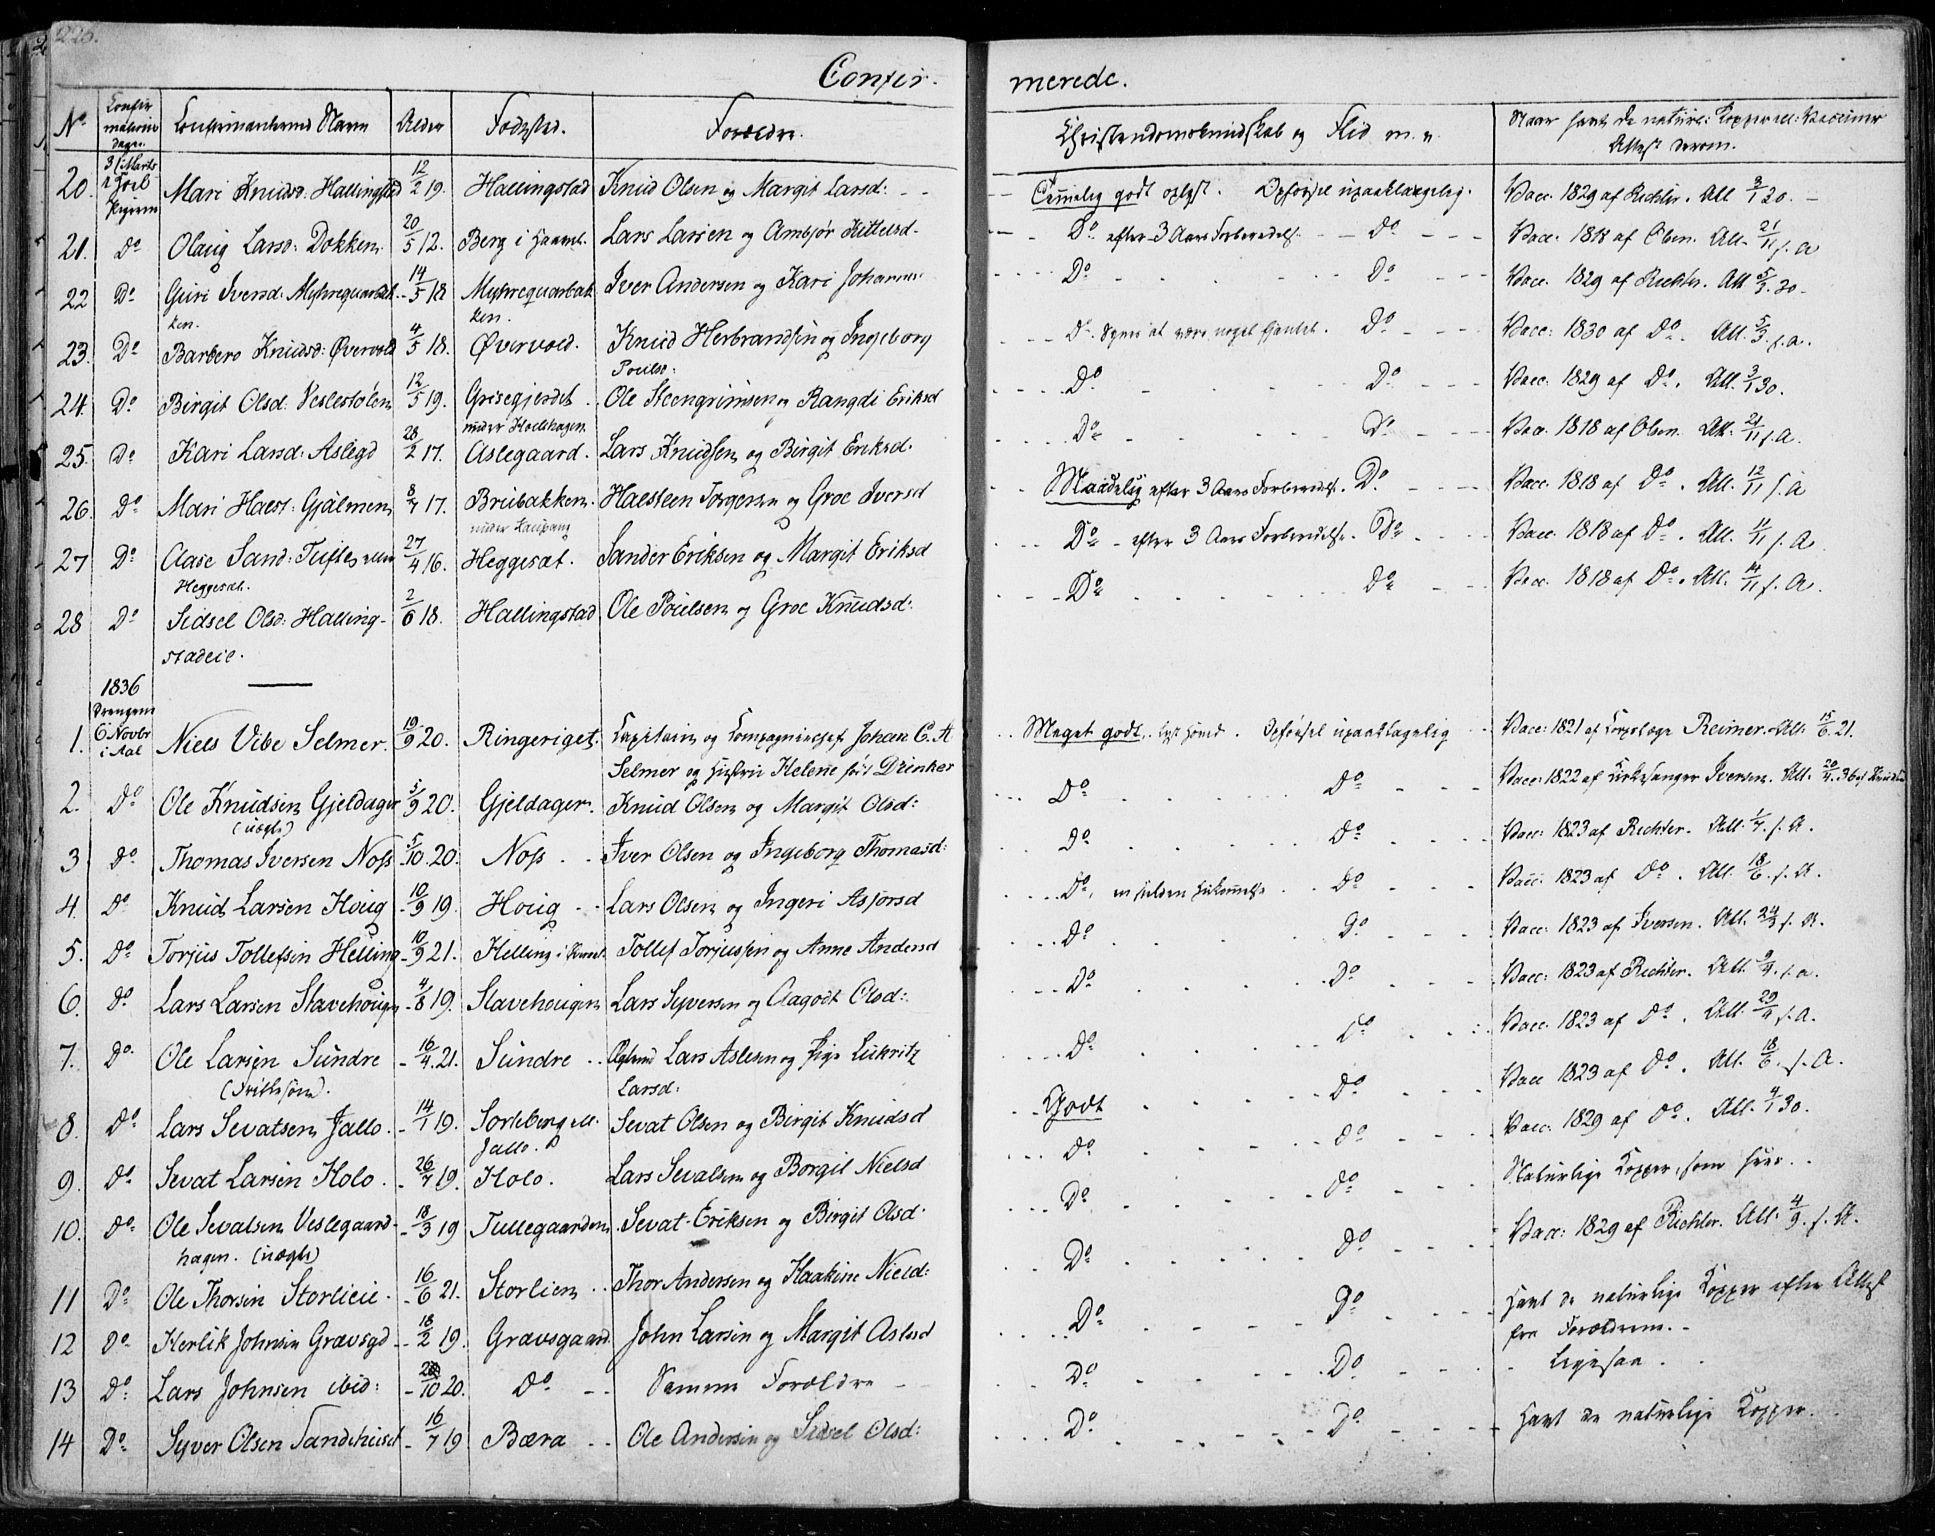 226.
Confir- merede.
No Confirmations dagen Confirmanternes Navn Alder Fødested. Forældre. Christendomskundskab og Flid m. v. Naar havt de naturl: Kopper ell: Vaccineret Attest derom.
20. 31 Marts i Hoel Pigerne Mari Knudsd: Hallingstad 12/2 19. Hallingstad Knud Olsen og Margit Larsd: Temelig godt oplyst. Opførsel upaaklagelig. Vacc: 1829 af Richter. Att 3/1 30.
21. Do Olaug Larsd: Dokken 20/5 12. Berg i Lars Larsen og Ambjør Kittelsd. Do efter 3 Aars Forberedelse. Do Vacc: 1818 af Olsen. Att. 21/11 s. A
22 Do Guri Iversd: Myhrequarbak 14/5 18 Myhrequarbak Iver Andersen og Kari Johanns Do Do Vacc. 1829 af Richter. Att 5/3. 30.
ken. ken.
23. Do Barbero Knudsd: Øvervold 4/5 18. Øvervold. Knud Herbrandsen og Ingeborg Do Synes at være noget Do Vacc: 1830 af Do. Att. 5/3. s. a.
Poulsd:
24. Do Birgit Olsd: Veslestølen 12/5 19. Grisegjerdet Ole Steengrimsen og Rangdi Eriksd Do Do Vacc: 1829 af Do. Att. 3/1 30.
under
25. Do Kari Larsd: Aslegd 28/2 17. Aslegaard. Lars Knudsen og Birgit Eriksd. Do Do Vacc. 1818 af Olsen. Att. 21/11 s. A.
26. Do Mari Haest: Gjalmen 8/7 17. Brubakken. Halsteen Torgersen og Groe Iversd Maadelig efter 3 Aars Forberedelse. Do Vacc. 1818 af Do. Att. 12/11 s. A
under Kaupang
27 Do Aase Sand: Tufte eller 27/4 16. Heggesæt. Sander Eriksen og Margit Eriksd Do efter 3 Aars Forberedelse. Do Vacc: 1818 af Do. Att. 11/11 s. A
Heggesæt.
28 Do Sidsel Olsd: Halling- 2/6 18. Hallingstad Ole Poulsen og Groe Knudsd: Do Do Vacc. 1818 af Do. Att. 14/11 s. A.
stadeie.
1836
Drengene
1. 6 Novbr i Aal Niels Vibe Selmer. 19/9 20. Ringeriget. Capitain og Compagniechef Johan C. A Meget godt. Opførsel upaaklagelig Vacc: 1821 af Corpslæge Reimer. Att. 15/6. 21.
Selmer og Hustru Helene født Drinker
2. Do Ole Knudsen Gjeldager 5/9 20. Gjeldager. Knud Olsen og Margit Olsd: Do Do Vacc: 1822 af Kirkesanger Iversen. Att. 20/4. 36 af
(uægte)
3 Do Thomas Iversen Noss 5/10. 20. Noss Iver Olsen og Ingeborg Thomasd: Do Do Vacc: 1823 af Richter. Att. 1/7. s. A.
4. Do Knud Larsen Houg 10/9 19. Houg Lars Olsen og Ingeri Asjørsd Do, en sjelden Hukommelse Do Vacc: 1823 af Do. Att. 18/6. s. A.
5. Do Torjus Tollefsen Helling 10/9 21. Helling i Tollef Torjussen og Anne Andersd Do Do Vacc: 1823 af Iversen. Att. 24/3 s. A.
6. Do Lars Larsen Slavehougen 4/8 19. Slavehougen Lars Syversen og Aagodt Olsd: Do Do Vacc: 1823 af Richter. Att. 9/4. s. a.
7. Do. Ole Larsen Sundre 16/4. 21. Sundre Lars Aslesen og Pige Lukritz Do Do Vacc. 1823 af Do. Att. 29/4 s. A.
Larsd:
8. Do Lars Sevatsen Jallo. 14/1 19. Sorteberg ell. Sevat Olsen og Birgit Knudsd Godt Do Vacc 1823 af Do. Att. 18/6. s. A.
Jallo.
9. Do Sevat Larsen Holo. 26/7 19. Holo. Lars Sevatsen og Borgil Nielsd Do Do Vacc: 1829 af Do. Att. 4/1 30.
10. Do Ole Sevatsen Veslegaard- 18/3 19 Tullegaarden Sevat Eriksen og Birgit Olsd. Do Do Naturlige Kopper, som
hagen. (uægte)
11 Do Ole Thorsen Storlieie. 16/6 21. Storlien Thor Andersen og Haakine Nield: Do Do Vacc: 1829 af Richter. Att: 4/9. s. A.
12 Do Herlik Johnsen Gravsgd 18/2 19. Gravsgaard John Larsen og Margit Aslesd Do Do Havt de naturlige Kopper efter Attest
fra Forældrene.
13 Do Lars Johnsen ibid: 10 20. Do Samme Forældre Do Do Ligesaa.
14 Do Syver Olsen Sandehuset 16/7 19 Bæra Ole Andersen og Sidsel Olsd: Do Do Havt de naturlige Kopper.